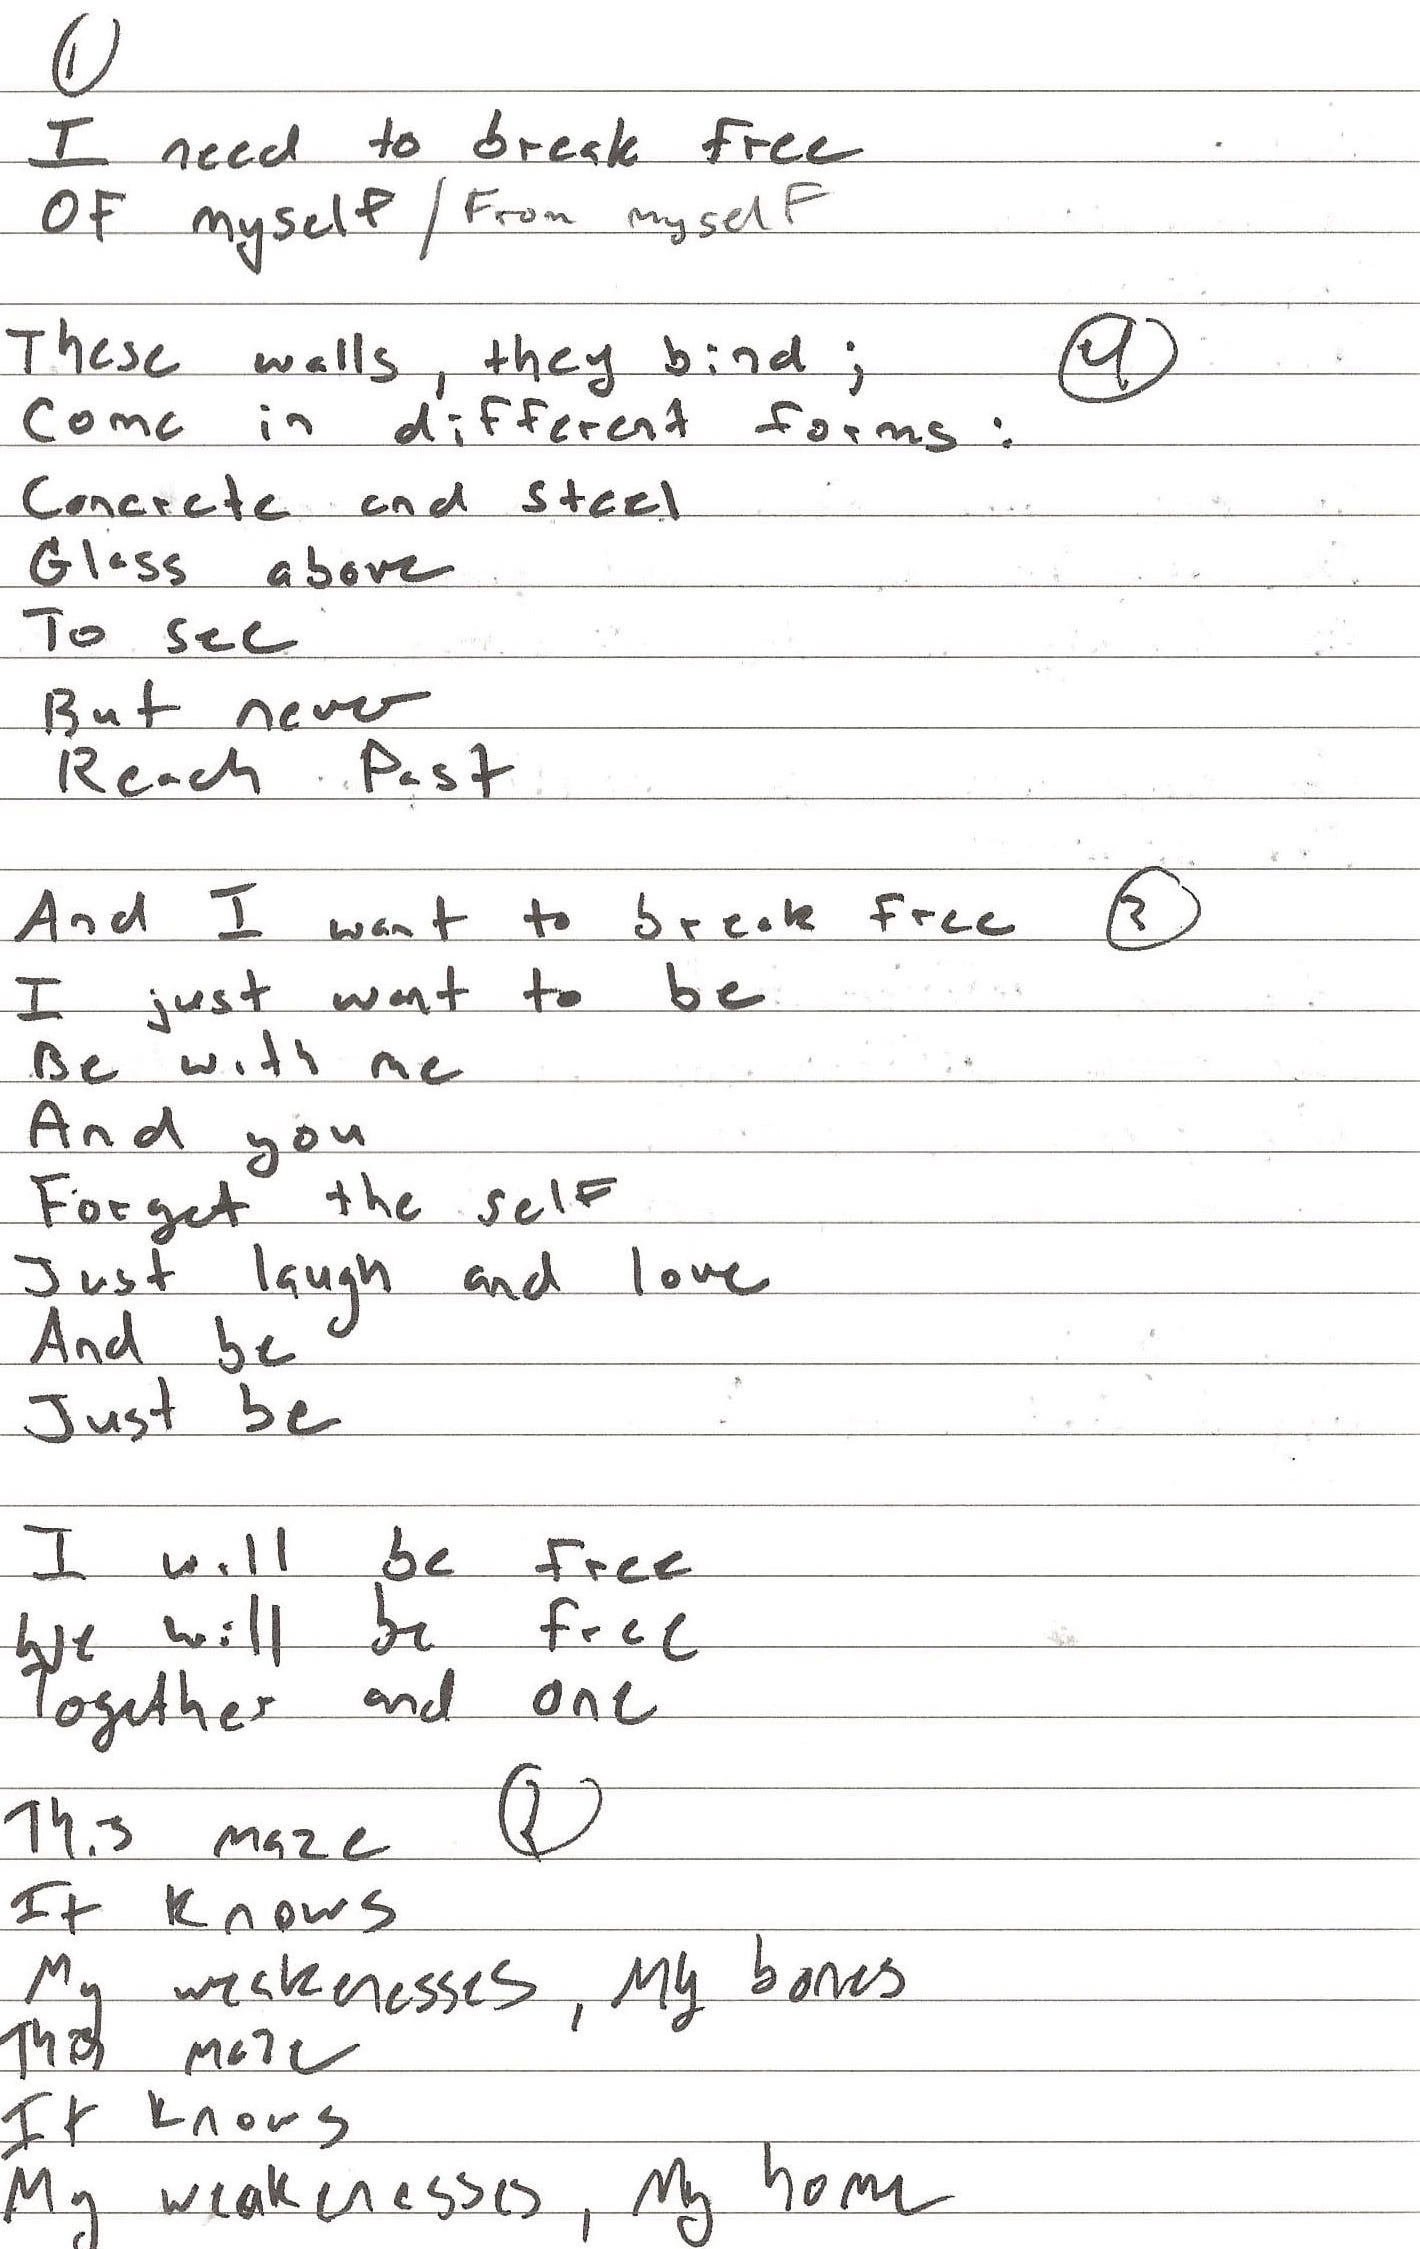 ①
I need to break free
Of myself / From myself
These walls, they bind; ④
Come in different forms:
Concrete and steel
Glass above
To see
But never
Reach Past
And I want to break free ③
I just want to be
Be with me
And you
Forget the self
Just laugh and love
And be
Just be
I will be free
We will be free
Together and one
This maze ②
It knows
My weakenesses, My bones
This maze
It knows
My weakenesses, My home